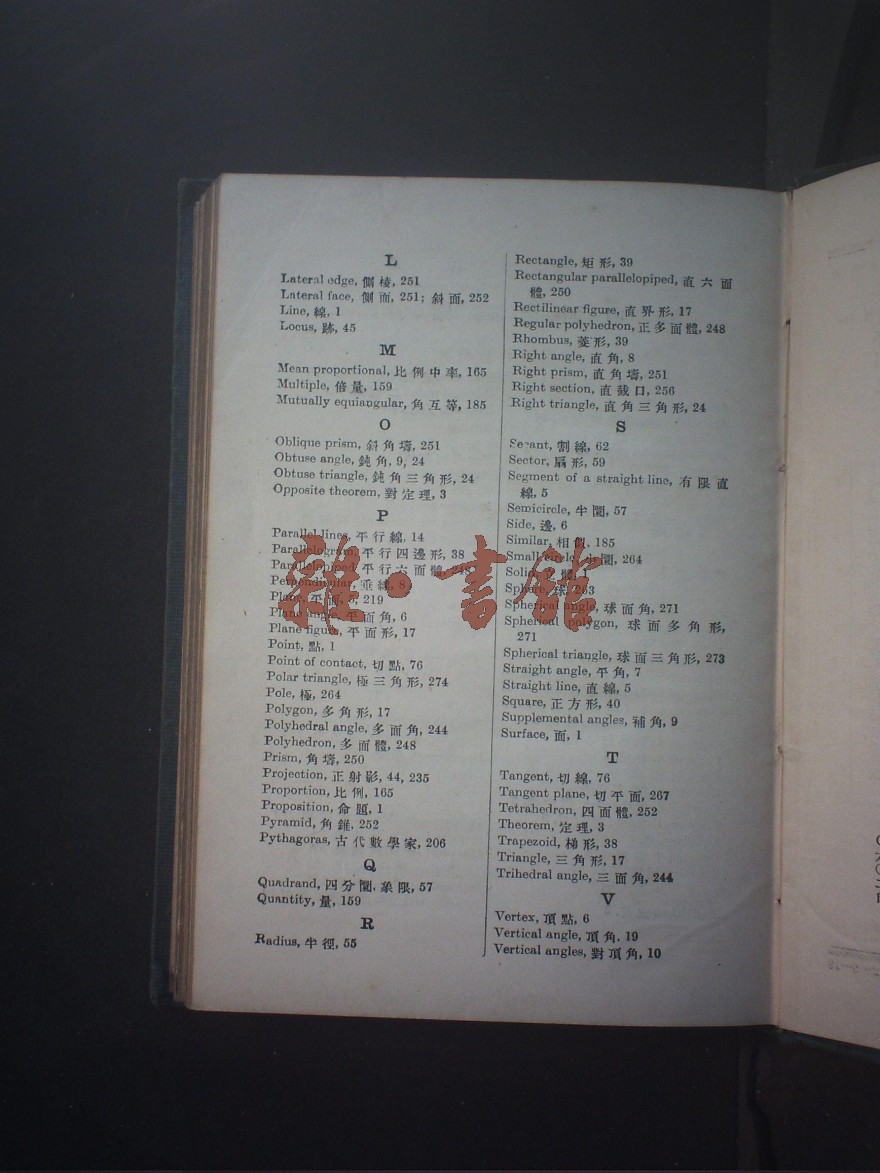 L
Lateral edge, 側 棱, 251
Lateral face, 側 面, 251; 斜 面, 252
Line, 線, 1
Locus, 跡, 45
M
Mean proportional, 比 例 中 率, 165
Multiple, 倍 量, 159
Mutually equiangular, 角 互 等, 185
O
Oblique prism, 斜 角 壔, 251
Obtuse angle, 鈍 角, 9, 24
Obtuse triangle, 鈍 角 三 角 形, 24
Opposite theorem, 對 定 理, 3
P
Parallel lines, 平 行 線, 14
Parallelogram, 平 行 四 邊 形, 38
Parallelopiped, 平 行 六 面 體, 248
Perpendicular, 垂 線, 8
Plane, 平 面, 5, 219
Plane angle, 平 面 角, 6
Plane figure, 平 面 形, 17
Point, 點, 1
Point of contact, 切 點, 76
Polar triangle, 極 三 角 形, 274
Pole, 極, 264
Polygon, 多 角 形, 17
Polyhedral angle, 多 面 角, 244
Polyhedron, 多 面 體, 248
Prism, 角 壔, 250
Projection, 正 射 影, 44, 235
Proportion, 比 例, 165
Proposition, 命 題, 1
Pyramid, 角 錐, 252
Pythagoras, 古 代 數 學 家, 206
Q
Quadrand, 四 分 圜, 象 限, 57
Quantity, 量, 159
R
Radius, 半 徑, 55
Rectangle, 矩 形, 39
Rectangular parallelopiped, 直 六 面
體, 250
Rectilinear figure, 直 界 形, 17
Regular polyhedron, 正 多 面 體, 248
Rhombus, 菱 形, 39
Right angle, 直 角, 8
Right prism, 直 角 壔, 251
Right section, 直 截 口, 256
Right triangle, 直 角 三 角 形, 24
S
Secant, 割 線, 62
Sector, 扇 形, 59
Segment of a straight line, 有 限 直
線, 5
Semicircle, 半 圜, 57
Side, 邊, 6
Similar, 相 似, 185
Small circle, 小 圜, 264
Solid, 體, 1
Sphere, 球, 263
Spherical angle, 球 面 角, 271
Spherical polygon, 球 面 多 角 形,
271
Spherical triangle, 球 面 三 角 形, 273
Straight angle, 平 角, 7
Straight line, 直 線, 5
Square, 正 方 形, 40
Supplemental angles, 補 角, 9
Surface, 面, 1
T
Tangent, 切 線, 76
Tangent plane, 切 平 面, 267
Tetrahedron, 四 面 體, 252
Theorem, 定 理, 3
Trapezoid, 梯 形, 38
Triangle, 三 角 形, 17
Trihedral angle, 三 面 角, 244
V
Vertex, 頂 點, 6
Vertical angle, 頂 角, 19
Vertical angles, 對 頂 角, 10
雜·書館